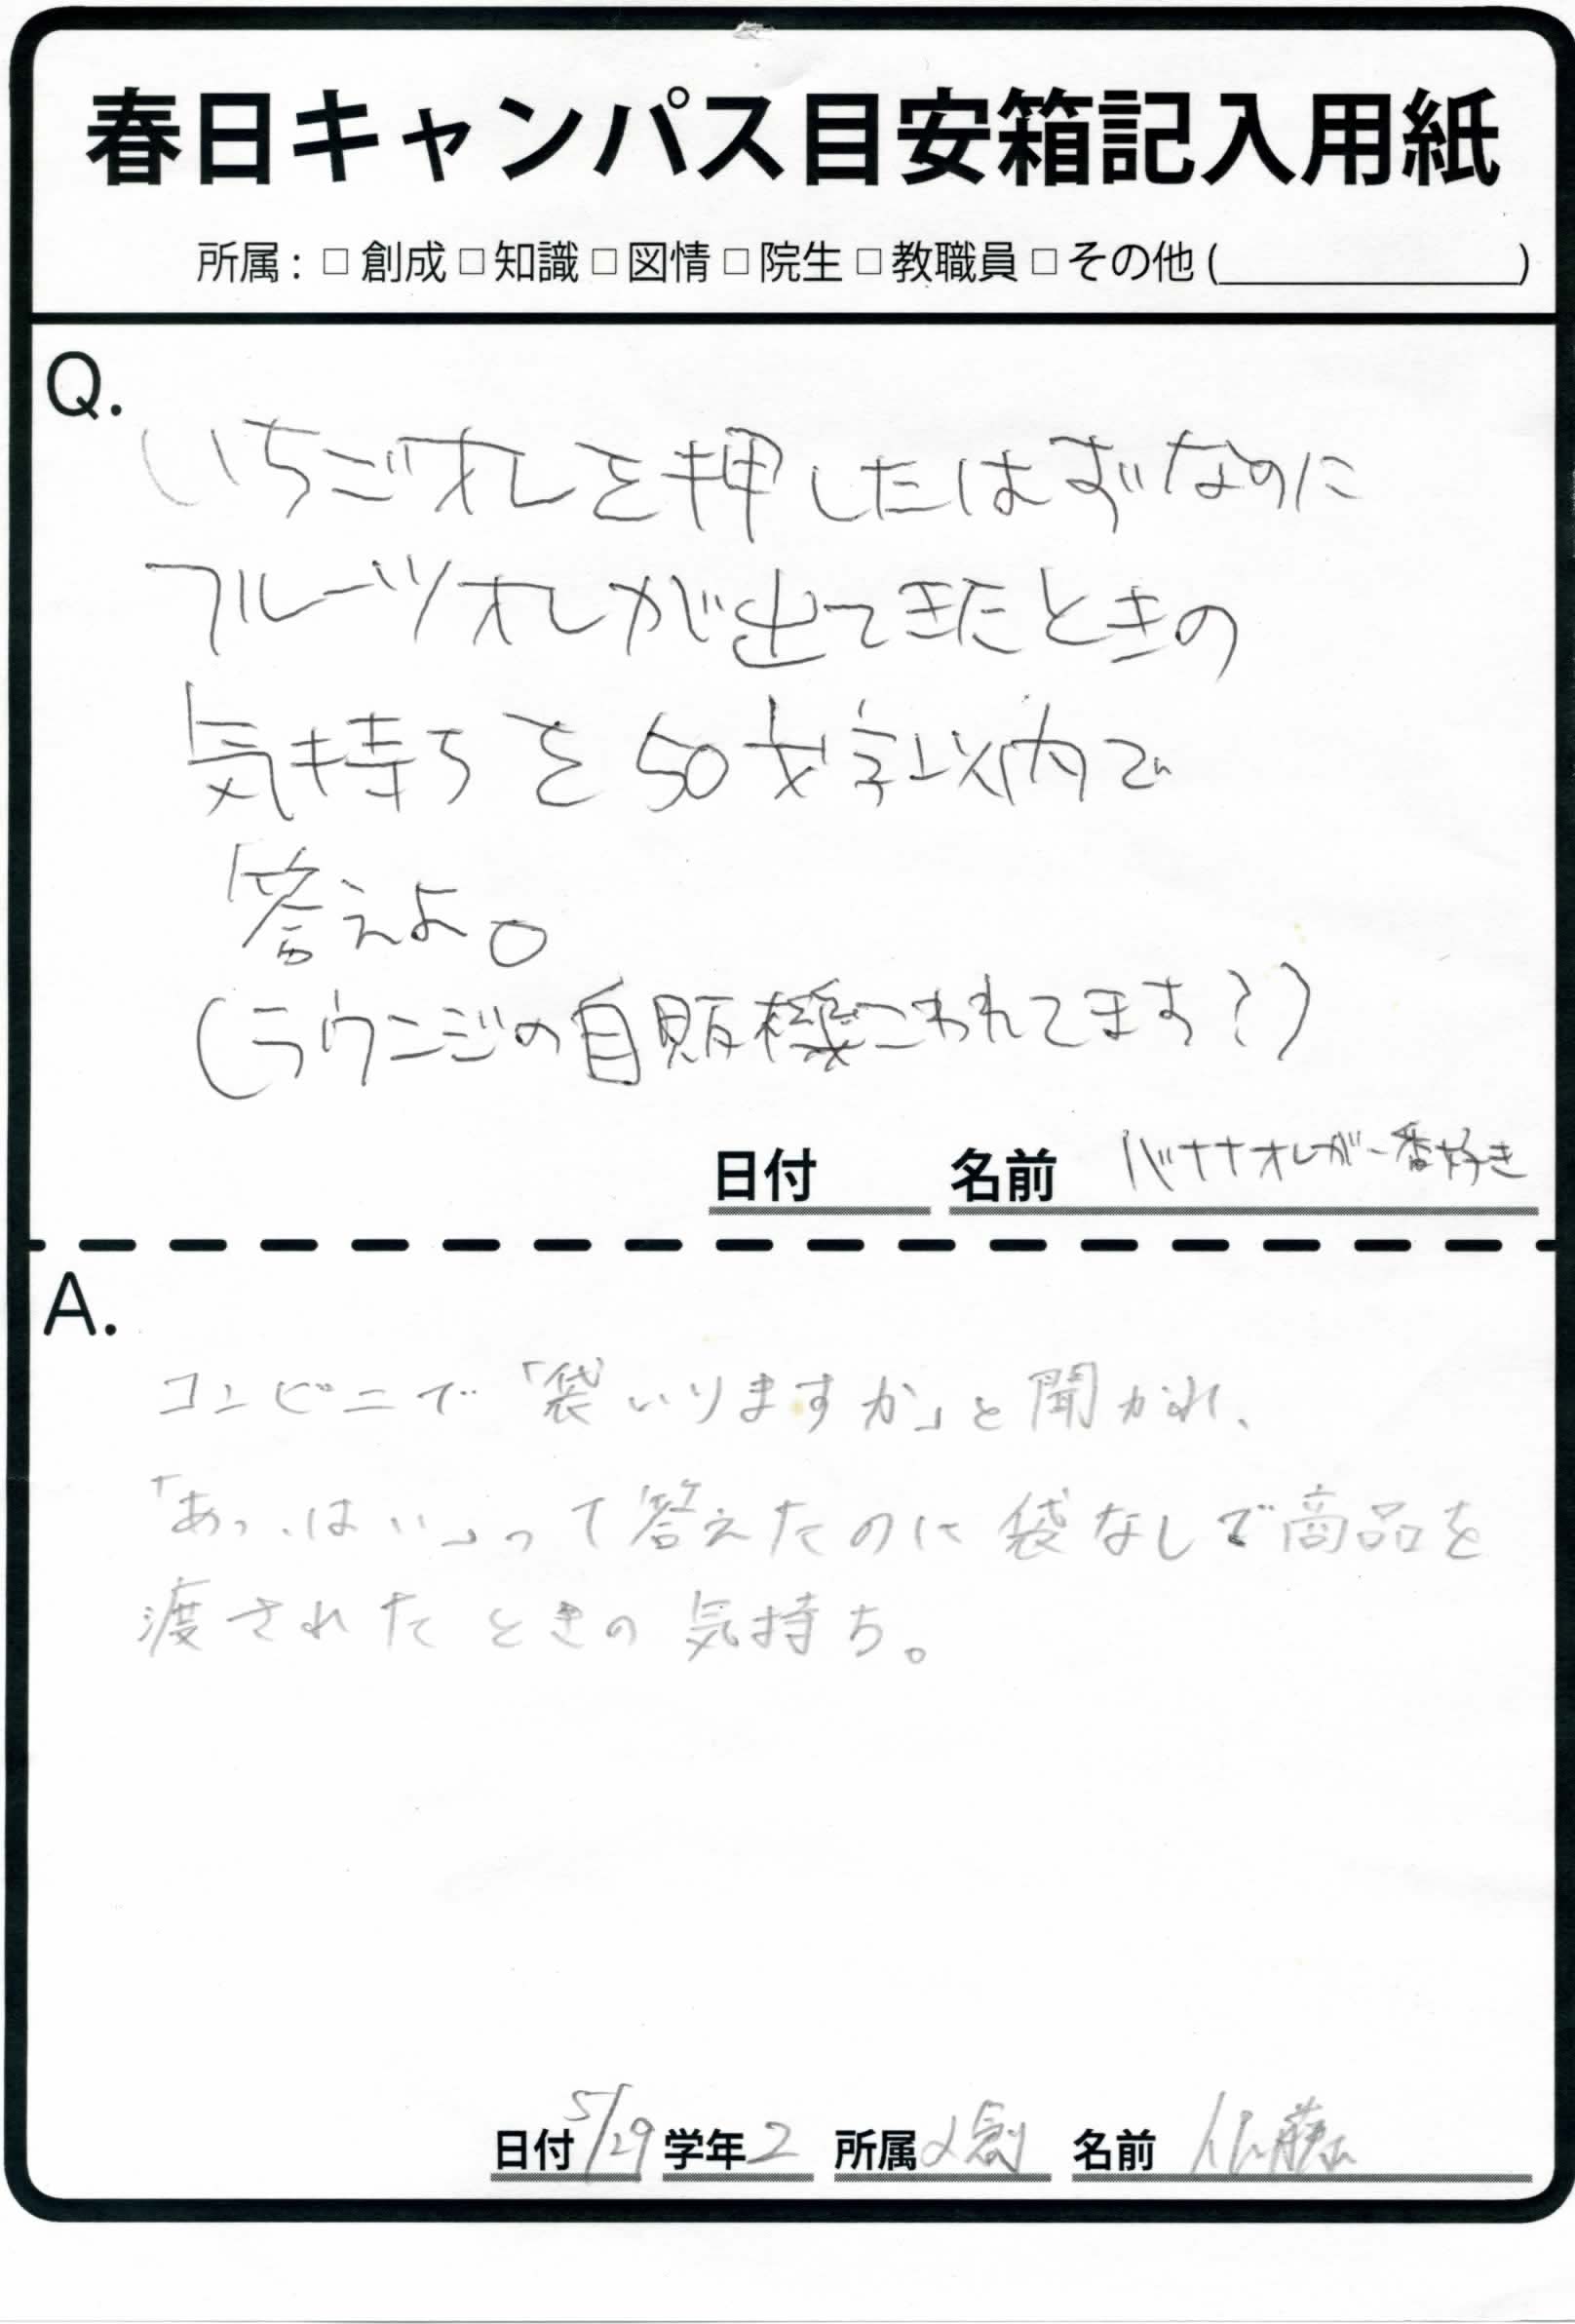 春日キャンパス目安箱記入用紙
所属：□ 創成 □ 知識 □ 図情 □ 院生 □ 教職員 □ その他（＿＿＿＿＿＿）
Q.
いちごオレを押したはずなのに
フルーツオレが出てきたときの
気持ちを50文字以内で
答えよ。
(ラウンジの自販機こわれてます?)
日付 名前 バナナオレが一番好き
A.
コンビニで「袋いりますか」と聞かれ、
「あっ、はい」って答えたのに袋なしで商品を
渡されたときの気持ち。
日付 5/29 学年 2 所属 メ創 名前 佐藤